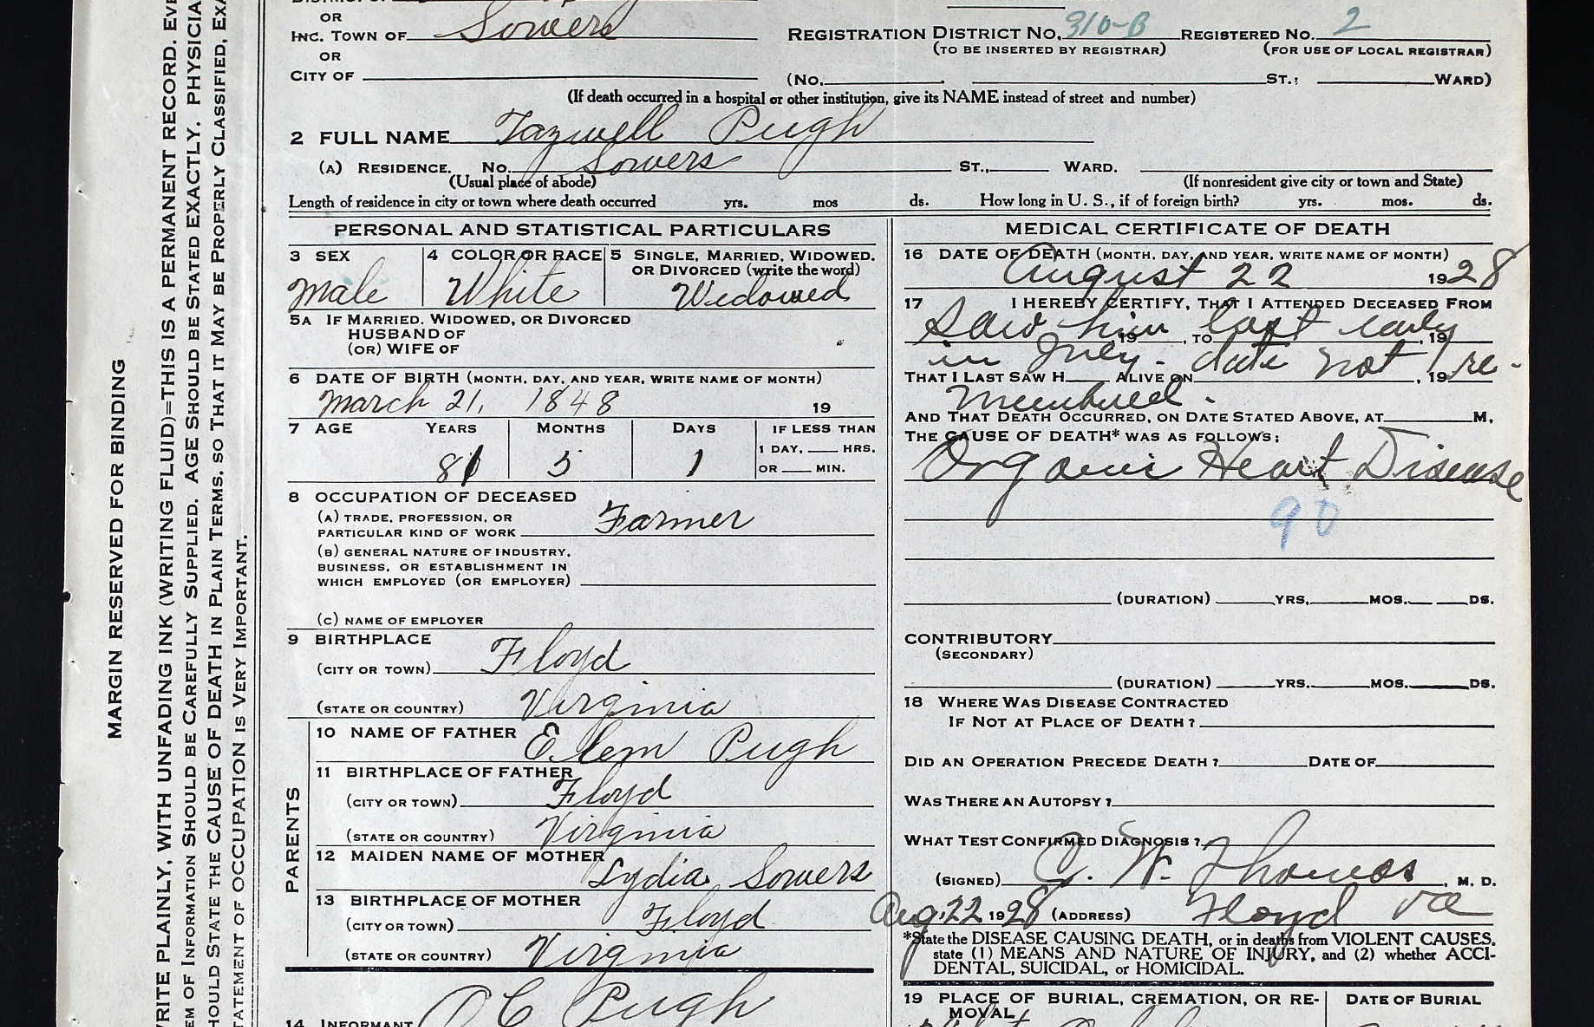 MARGIN RESERVED FOR BINDING
WRITE PLAINLY, WITH UNFADING INK (WRITING FLUID)=THIS IS A PERMANENT RECORD. EVE
EM OF INFORMATION SHOULD BE CAREFULLY SUPPLIED. AGE SHOULD BE STATED EXACTLY. PHYSICIA
HOULD STATE THE CAUSE OF DEATH IN PLAIN TERMS, SO THAT IT MAY BE PROPERLY CLASSIFIED, EXA
TATEMENT OF OCCUPATION IS VERY IMPORTANT.
OR
INC. TOWN OF Sowers REGISTRATION DISTRICT NO. 310-B REGISTERED NO. 2
OR (TO BE INSERTED BY REGISTRAR) (FOR USE OF LOCAL REGISTRAR)
CITY OF (NO. ST.; WARD)
(If death occurred in a hospital or other institution, give its NAME instead of street and number)
2 FULL NAME Tazwell Pugh
(A) RESIDENCE. NO. Sowers ST., WARD.
(Usual place of abode) (If nonresident give city or town and State)
Length of residence in city or town where death occurred yrs. mos ds. How long in U. S., if of foreign birth? yrs. mos. ds.
PERSONAL AND STATISTICAL PARTICULARS
3 SEX 4 COLOR OR RACE 5 SINGLE, MARRIED, WIDOWED,
OR DIVORCED (write the word)
Male White Widowed
5A IF MARRIED, WIDOWED, OR DIVORCED
HUSBAND OF
(OR) WIFE OF
6 DATE OF BIRTH (MONTH, DAY, AND YEAR, WRITE NAME OF MONTH)
March 21, 1848 19
7 AGE YEARS MONTHS DAYS IF LESS THAN
1 DAY, HRS.
81 5 1 OR MIN.
8 OCCUPATION OF DECEASED
(A) TRADE, PROFESSION, OR
PARTICULAR KIND OF WORK Farmer
(B) GENERAL NATURE OF INDUSTRY,
BUSINESS, OR ESTABLISHMENT IN
WHICH EMPLOYED (OR EMPLOYER)
(C) NAME OF EMPLOYER
9 BIRTHPLACE
(CITY OR TOWN) Floyd
(STATE OR COUNTRY) Virginia
PARENTS
10 NAME OF FATHER Elem Pugh
11 BIRTHPLACE OF FATHER
(CITY OR TOWN) Floyd
(STATE OR COUNTRY) Virginia
12 MAIDEN NAME OF MOTHER
Lydia Sowers
13 BIRTHPLACE OF MOTHER
(CITY OR TOWN) Floyd
(STATE OR COUNTRY) Virginia
14 INFORMANT Pugh
MEDICAL CERTIFICATE OF DEATH
16 DATE OF DEATH (MONTH, DAY, AND YEAR, WRITE NAME OF MONTH)
August 22 1928
17 I HEREBY CERTIFY, THAT I ATTENDED DECEASED FROM
Saw him last early
19 , TO , 19
in July. date not re-
THAT I LAST SAW H ALIVE ON , 19
membered.
AND THAT DEATH OCCURRED, ON DATE STATED ABOVE, AT M.
THE CAUSE OF DEATH* WAS AS FOLLOWS:
Organic Heart Disease
90
(DURATION) YRS. MOS. DS.
CONTRIBUTORY
(SECONDARY)
(DURATION) YRS. MOS. DS.
18 WHERE WAS DISEASE CONTRACTED
IF NOT AT PLACE OF DEATH?
DID AN OPERATION PRECEDE DEATH? DATE OF
WAS THERE AN AUTOPSY?
WHAT TEST CONFIRMED DIAGNOSIS?
(SIGNED) W. Thomas, M. D.
Aug. 22 1928 (ADDRESS) Floyd Va
*State the DISEASE CAUSING DEATH, or in deaths from VIOLENT CAUSES,
state (1) MEANS AND NATURE OF INJURY, and (2) whether ACCI-
DENTAL, SUICIDAL, or HOMICIDAL.
19 PLACE OF BURIAL, CREMATION, OR RE- DATE OF BURIAL
MOVAL